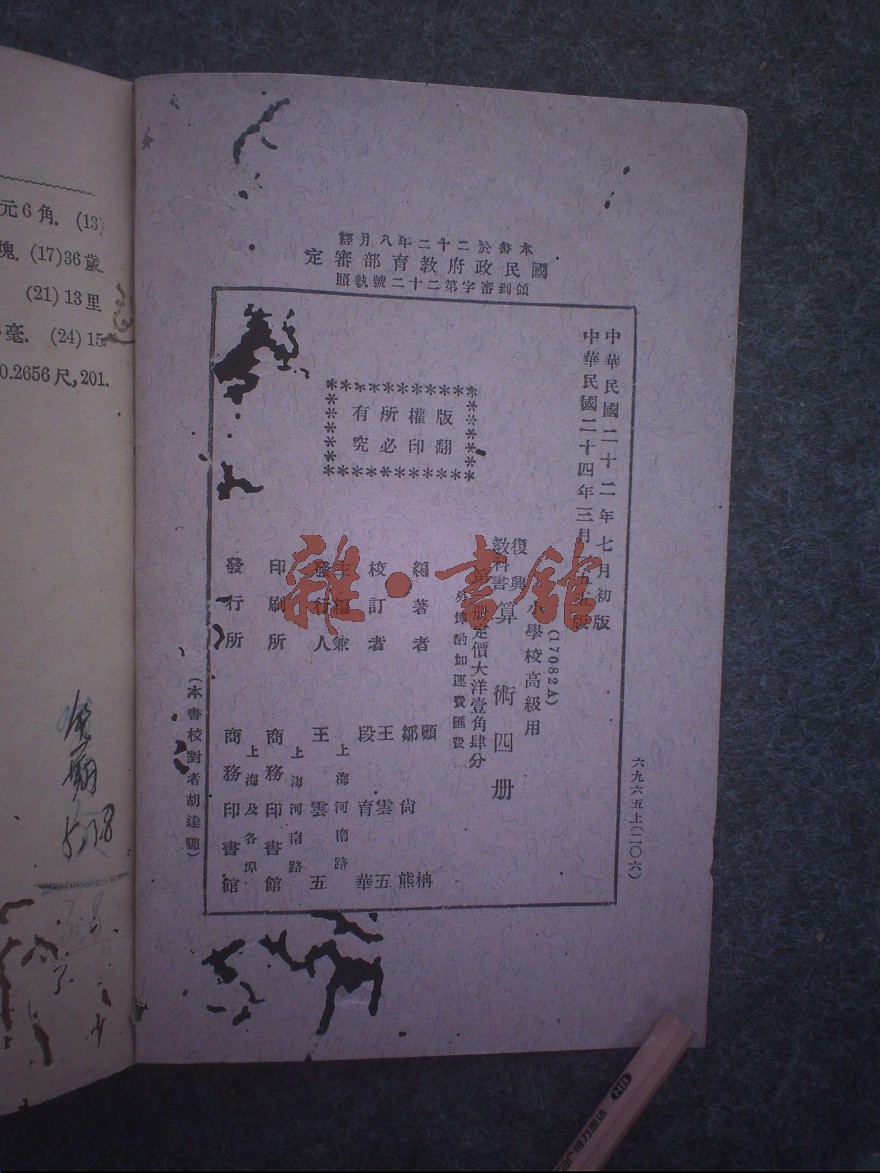 元6角. (13)
塊. (17)36歲.
(21) 13里
毫. (24) 15
0.2656尺,201.
本書於二十二年八月經
國民政府教育部審定
領到審字第二十二號執照
中華民國二十二年七月初版
中華民國二十四年三月
版
(17082A)
小學校高級用
復興
教科書
算術四册
册定價大洋壹角肆分
外埠酌加運費匯費
版權所有
翻印必究
編著者
顧柟
鄒尚熊
校訂者
王雲五
段育華
主編兼
發行人
上海河南路
王雲五
印刷所
上海河南路
商務印書館
發行所
上海及各埠
商務印書館
(本書校對者胡達聰)
六九六五上(二〇六)
雜·書館
HB